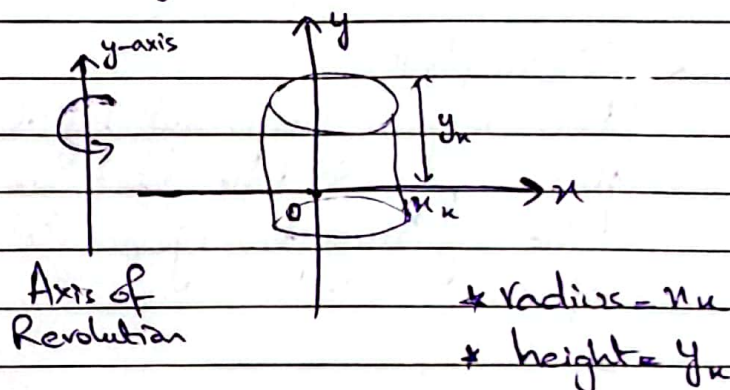 y
y-axis
yₖ
0
xₖ
x
Axis of
Revolution
* radius = xₖ
* height = yₖ